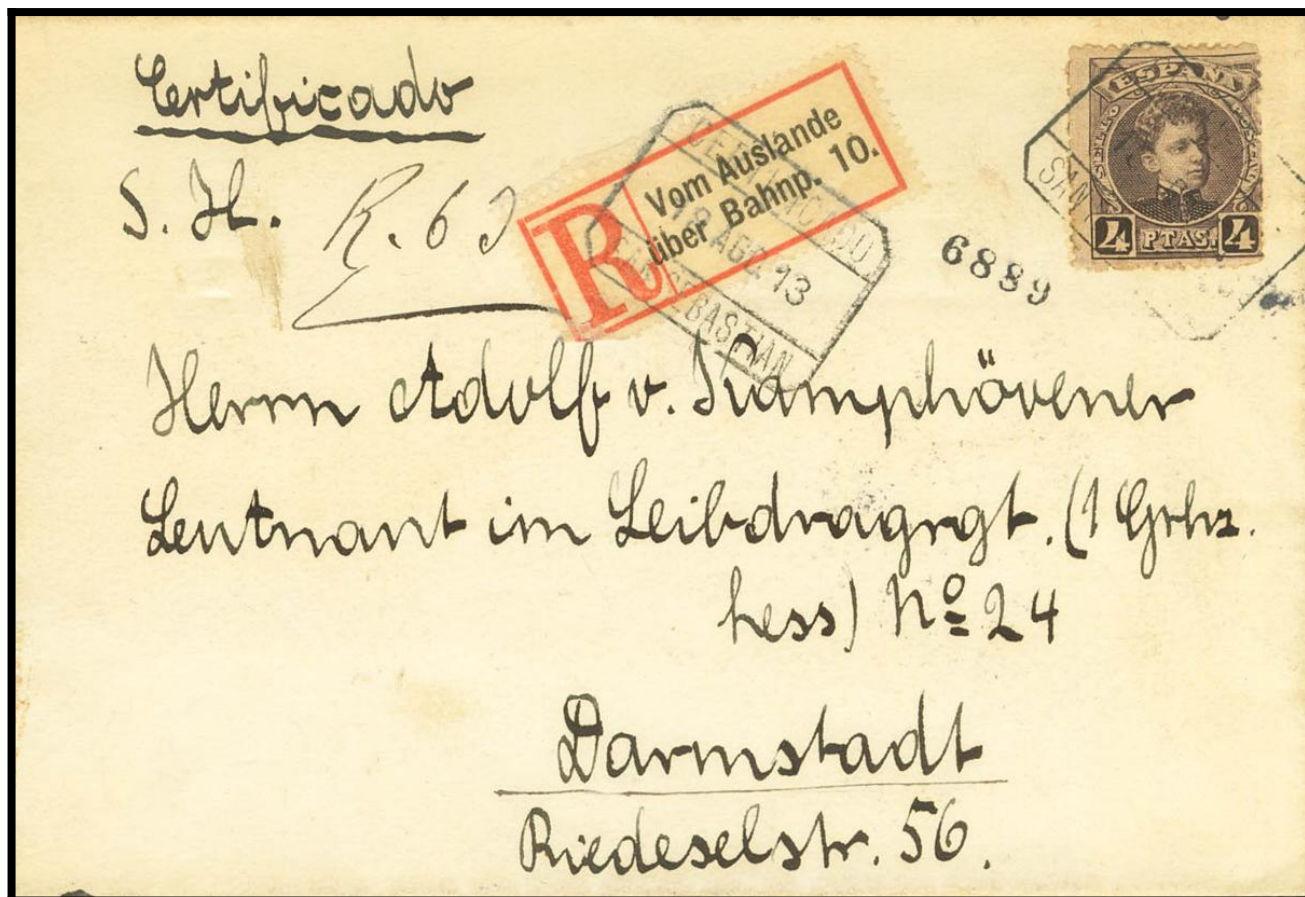 Certificado
S. H.
R. 6
R Vom Auslande
über Bahnp. 10.
CERTIFICADO
AGO. 13
SAN SEBASTIAN
6889
ESPAÑA
SELLO
4 PTAS. 4
SAN
Herrn Adolf v. Kamphövener
Leutnant im Leibdragrgt. (1 Grhz.
hess) No 24
Darmstadt
Riedeselstr. 56.